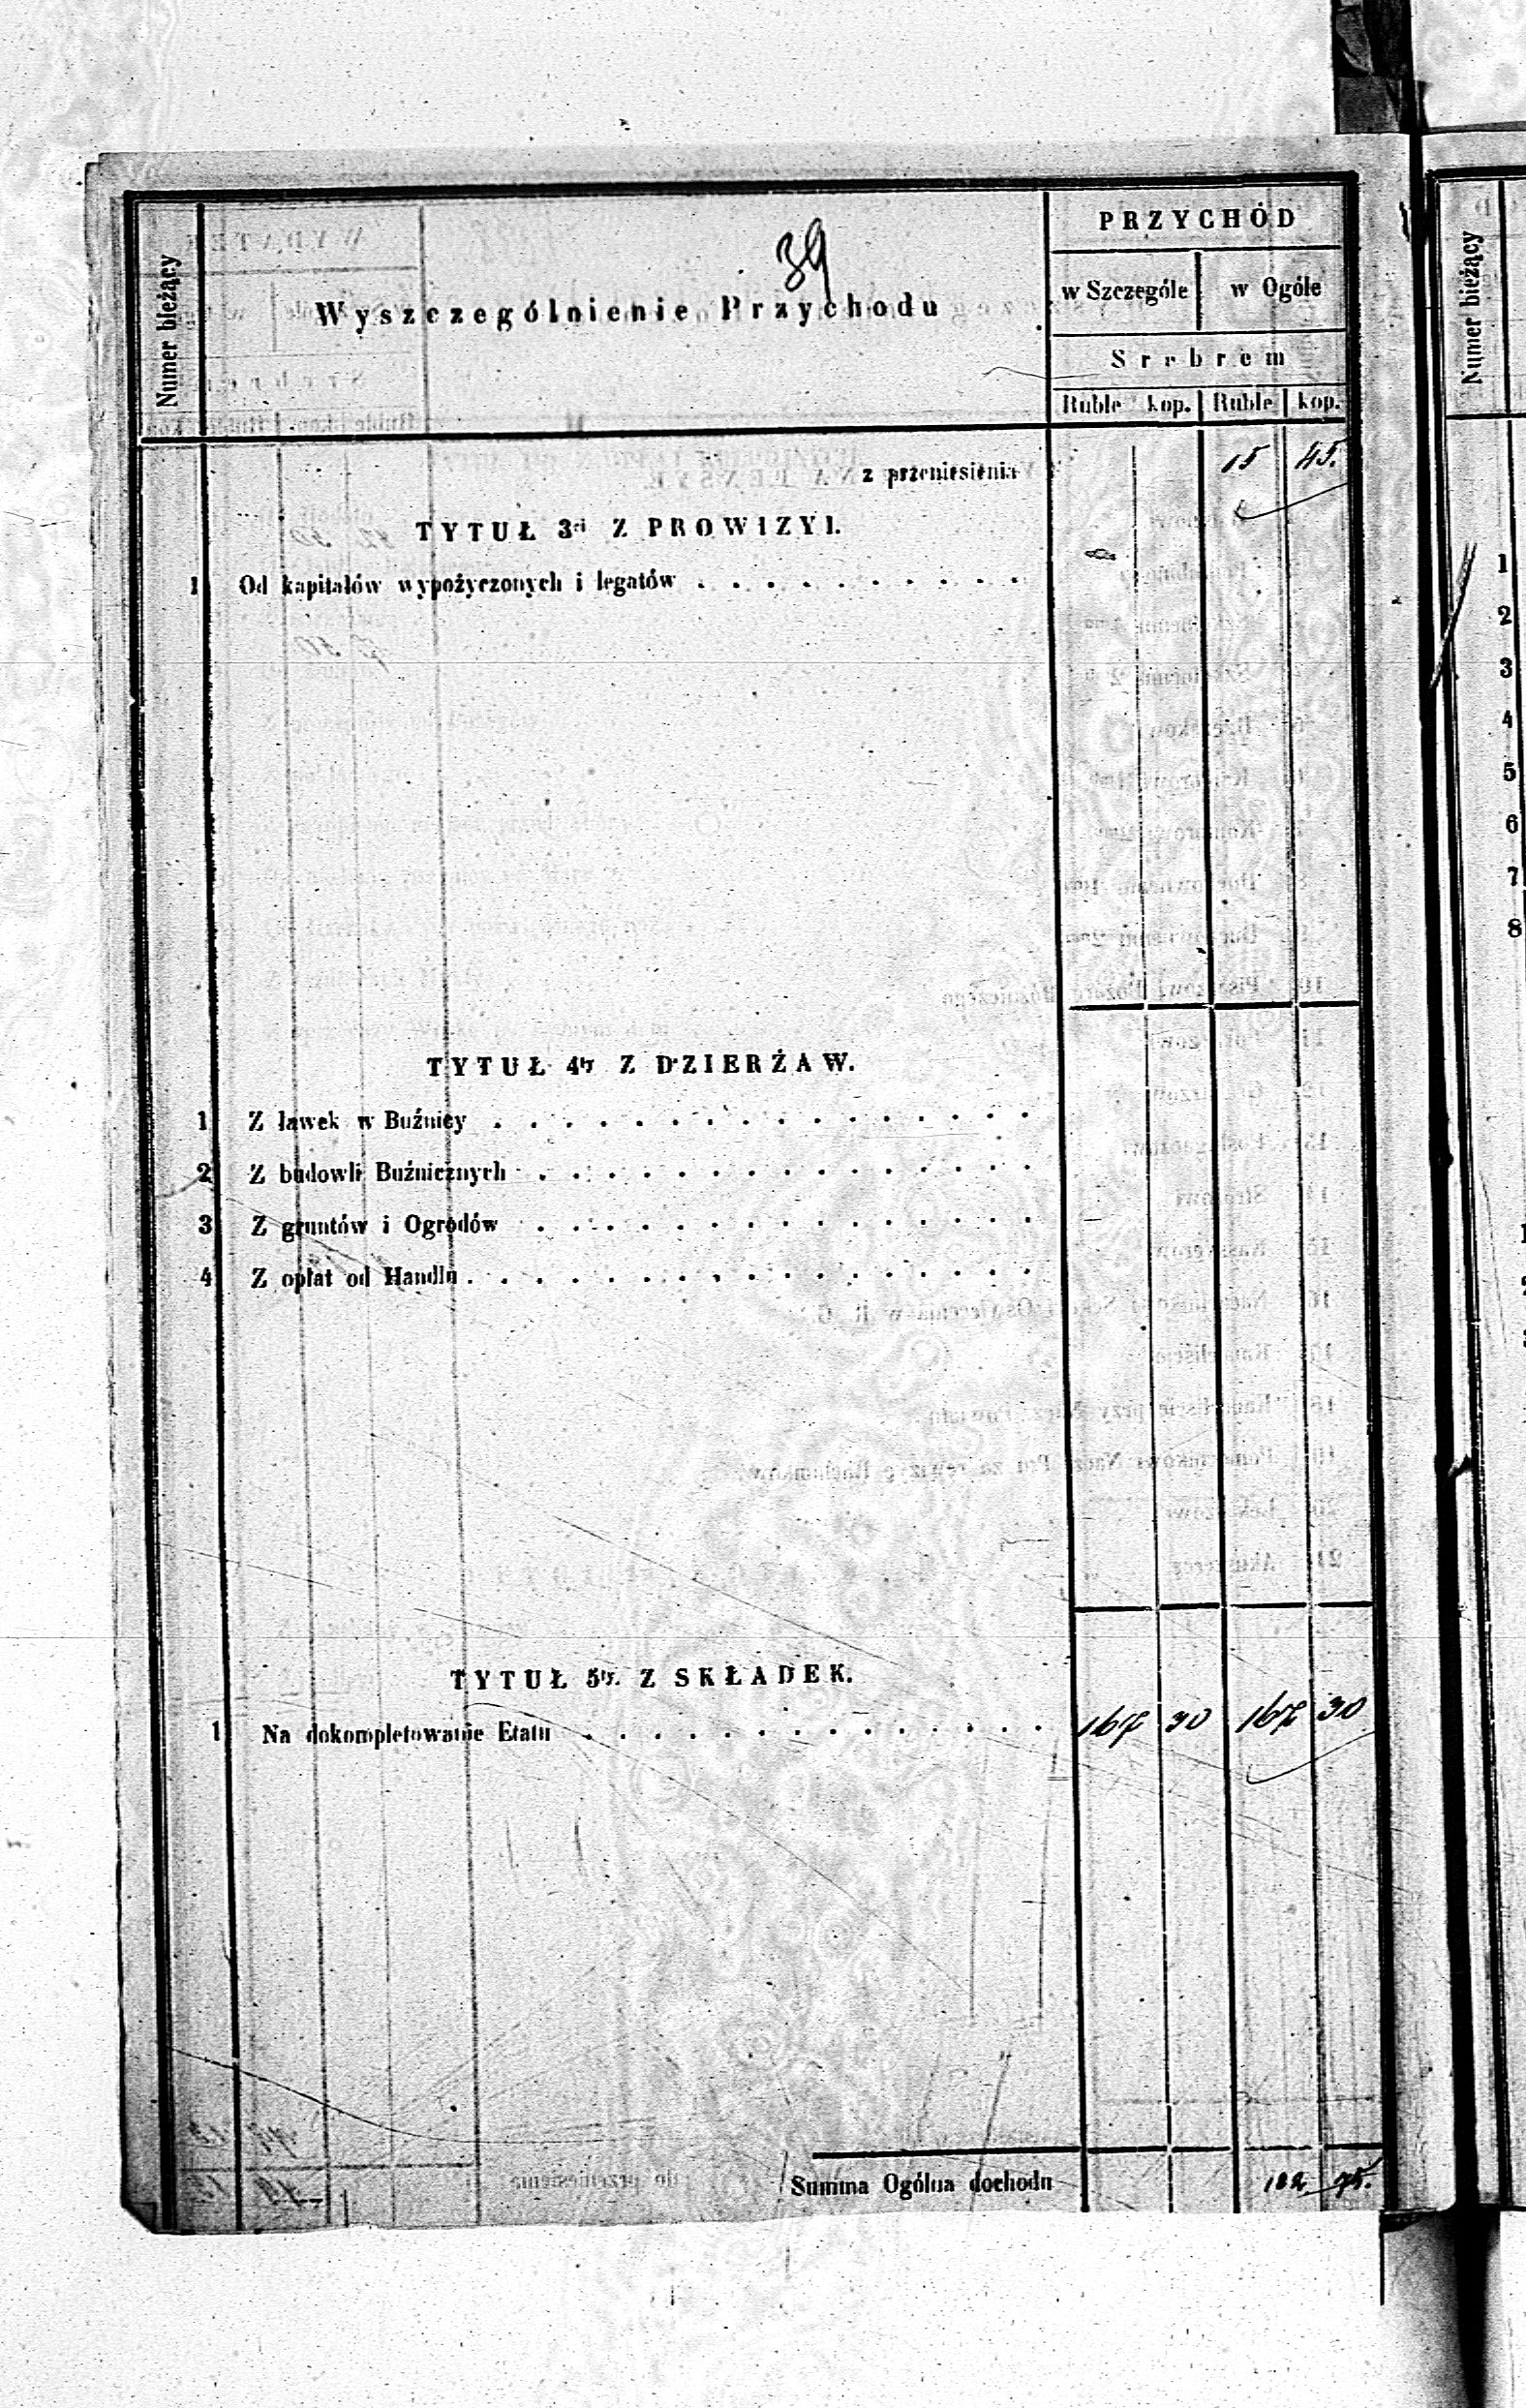 39
Numer bieżący
Wyszczególnienie Przychodu
PRZYCHÓD
w Szczególe w Ogóle
Srebrem
Ruble kop. Ruble kop.
z przeniesienia 15 45.
TYTUŁ 3ci Z PROWIZYI.
1 Od kapitałów wypożyczonych i legatów . . . . . . . . . .
TYTUŁ 4ty Z DZIERŻAW.
1 Z ławek w Buźnicy . . . . . . . . . . . . . . . .
2 Z budowli Buźnicznych . . . . . . . . . . . . . . .
3 Z gruntów i Ogrodów . . . . . . . . . . . . . . . —
4 Z opłat od Handlu . . . . . . . . . . . . . . . . .
TYTUŁ 5ty. Z SKŁADEK.
1 Na dokompletowanie Etatu . . . . . . . . . . . . . . 167 30 167 30
Summa Ogólna dochodu 182 75.
Numer bieżący
1
2
3
4
5
6
7
8